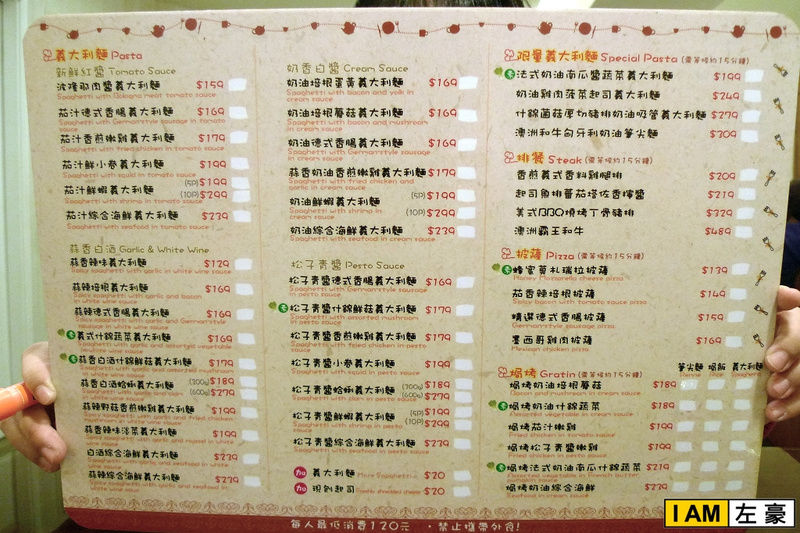 義大利麵 Pasta
新鮮紅醬 Tomato Sauce
波隆那肉醬義大利麵 $159
Spaghetti with Bologna meat tomato sauce
茄汁德式香腸義大利麵 $169
Spaghetti with Germanstyle sausage in tomato sauce
茄汁香煎嫩雞義大利麵 $179
Spaghetti with fried chicken in tomato sauce
茄汁鮮小卷義大利麵 $199
Spaghetti with squid in tomato sauce
茄汁鮮蝦義大利麵 (5P) $199
Spaghetti with shrimp in tomato sauce (10P) $299
茄汁綜合海鮮義大利麵 $239
Spaghetti with seafood in tomato sauce
蒜香白酒 Garlic & White Wine
蒜香辣味義大利麵 $129
Spicy spaghetti with garlic in white wine sauce
蒜辣培根義大利麵 $169
Spicy spaghetti with garlic and bacon in white wine sauce
蒜辣德式香腸義大利麵 $169
Spicy spaghetti with garlic and Germanstyle sausage in white wine sauce
義式什錦蔬菜義大利麵 $169
蒜香白酒什錦鮮菇義大利麵 $179
蒜香白酒蛤蜊義大利麵 (300g) $189
(600g) $279
蒜辣野菇香煎嫩雞義大利麵 $199
蒜香辣味淡菜義大利麵 $199
白酒綜合海鮮義大利麵 $239
蒜辣綜合海鮮義大利麵 $239
奶香白醬 Cream Sauce
奶油培根蛋黃義大利麵 $169
Spaghetti with bacon and yolk in cream sauce
奶油培根蘑菇義大利麵 $169
Spaghetti with bacon and mushroom in cream sauce
奶油德式香腸義大利麵 $169
Spaghetti with Germanstyle sausage in cream sauce
蒜香奶油香煎嫩雞義大利麵 $179
Spaghetti with fried chicken and garlic in cream sauce
奶油鮮蝦義大利麵 (5P) $199
Spaghetti with shrimp in cream sauce (10P) $299
奶油綜合海鮮義大利麵 $239
Spaghetti with seafood in cream sauce
松子青醬 Pesto Sauce
松子青醬德式香腸義大利麵 $169
Spaghetti with Germanstyle sausage in pesto sauce
松子青醬什錦鮮菇義大利麵 $179
Spaghetti with assorted mushroom in pesto sauce
松子青醬香煎嫩雞義大利麵 $179
Spaghetti with fried chicken in pesto sauce
松子青醬小卷義大利麵 $199
Spaghetti with squid in pesto sauce
松子青醬蛤蜊義大利麵 (300g) $189
Spaghetti with clam in pesto sauce (600g) $279
松子青醬鮮蝦義大利麵 (5P) $199
Spaghetti with shrimp in pesto sauce (10P) $299
松子青醬綜合海鮮義大利麵 $239
Spaghetti with seafood in pesto sauce
加 義大利麵 More Spaghetti $20
加 現刨起司 Freshly shredded cheese $20
限量義大利麵 Special Pasta (需等候約15分鐘)
法式奶油南瓜醬蔬菜義大利麵 $199
奶油雞肉菠菜起司義大利麵 $249
什錦菌菇厚切豬排奶油吸管義大利麵 $279
澳洲和牛匈牙利奶油筆尖麵 $309
排餐 Steak (需等候約15分鐘)
香煎義式香料雞腿排 $209
起司魚排番茄塔佐香檸醬 $219
美式BBQ燒烤丁骨豬排 $329
澳洲霸王和牛 $489
披薩 Pizza (需等候約15分鐘)
蜂蜜莫札瑞拉披薩 $139
Honey Mozzarella cheese pizza
茄香辣培根披薩 $149
Spicy bacon with tomato sauce pizza
精選德式香腸披薩 $159
Germanstyle sausage pizza
墨西哥雞肉披薩 $169
Mexican chicken pizza
焗烤 Gratin (需等候約15分鐘) 筆尖麵 焗飯 義大利麵
焗烤奶油培根蘑菇 $189
Bacon and mushroom in cream sauce
焗烤奶油什錦蔬菜 $189
Assorted vegetable in cream sauce
焗烤茄汁嫩雞 $199
Fried chicken in tomato sauce
焗烤松子青醬嫩雞 $199
Fried chicken in pesto sauce
焗烤法式奶油南瓜什錦蔬菜 $219
Assorted vegetable in French butter pumpkin sauce
焗烤奶油綜合海鮮 $239
Seafood in cream sauce
每人最低消費120元 ・禁止攜帶外食!
I AM 左豪